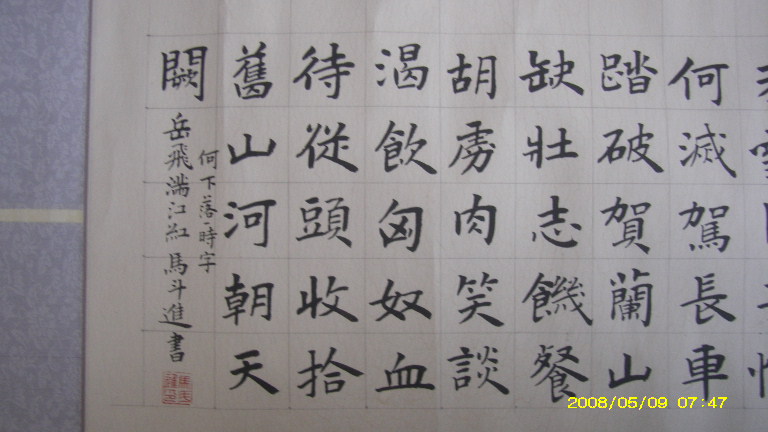 何滅駕長車
踏破賀蘭山
缺壯志饑餐
胡虜肉笑談
渴飲匈奴血
待從頭收拾
舊山河朝天
闕
何下落時字
岳飛滿江紅 馬斗進書
2008/05/09 07:47